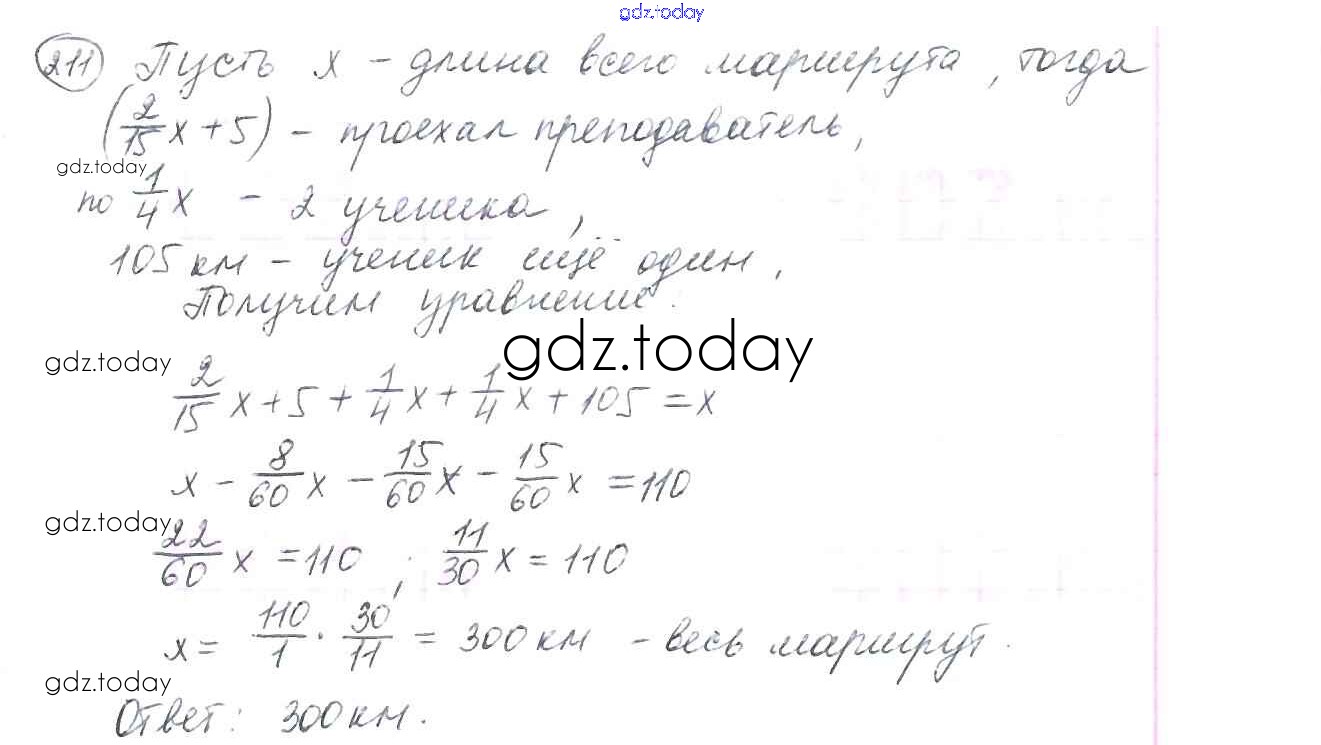 gdz.today
211 Пусть x - длина всего маршрута, тогда
(2/15 x + 5) - проехал преподаватель,
gdz.today
по 1/4 x - 2 ученика,
105 км - ученик ещё один.
Получим уравнение:
gdz.today
gdz.today
2/15 x + 5 + 1/4 x + 1/4 x + 105 = x
x - 8/60 x - 15/60 x - 15/60 x = 110
gdz.today
22/60 x = 110 ; 11/30 x = 110
x = 110/1 · 30/11 = 300 км - весь маршрут.
gdz.today
Ответ: 300 км.